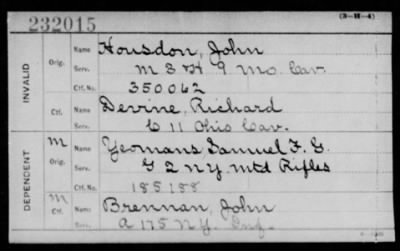 232015
(3-H-4)
INVALID
Orig. Name Housdon, John
Serv. M 3 & H 9 Mo. Cav.
Ctf. No. 350062
Ctf. Name Devine, Richard
Serv. C 11 Ohio Cav.
DEPENDENT
M Orig. Name Yeomans, Samuel F. G.
Serv. G 2 N.Y. Mtd Rifles
Ctf. No. 185188
M Ctf. Name Brennan, John
A 175 N.Y. Inf.